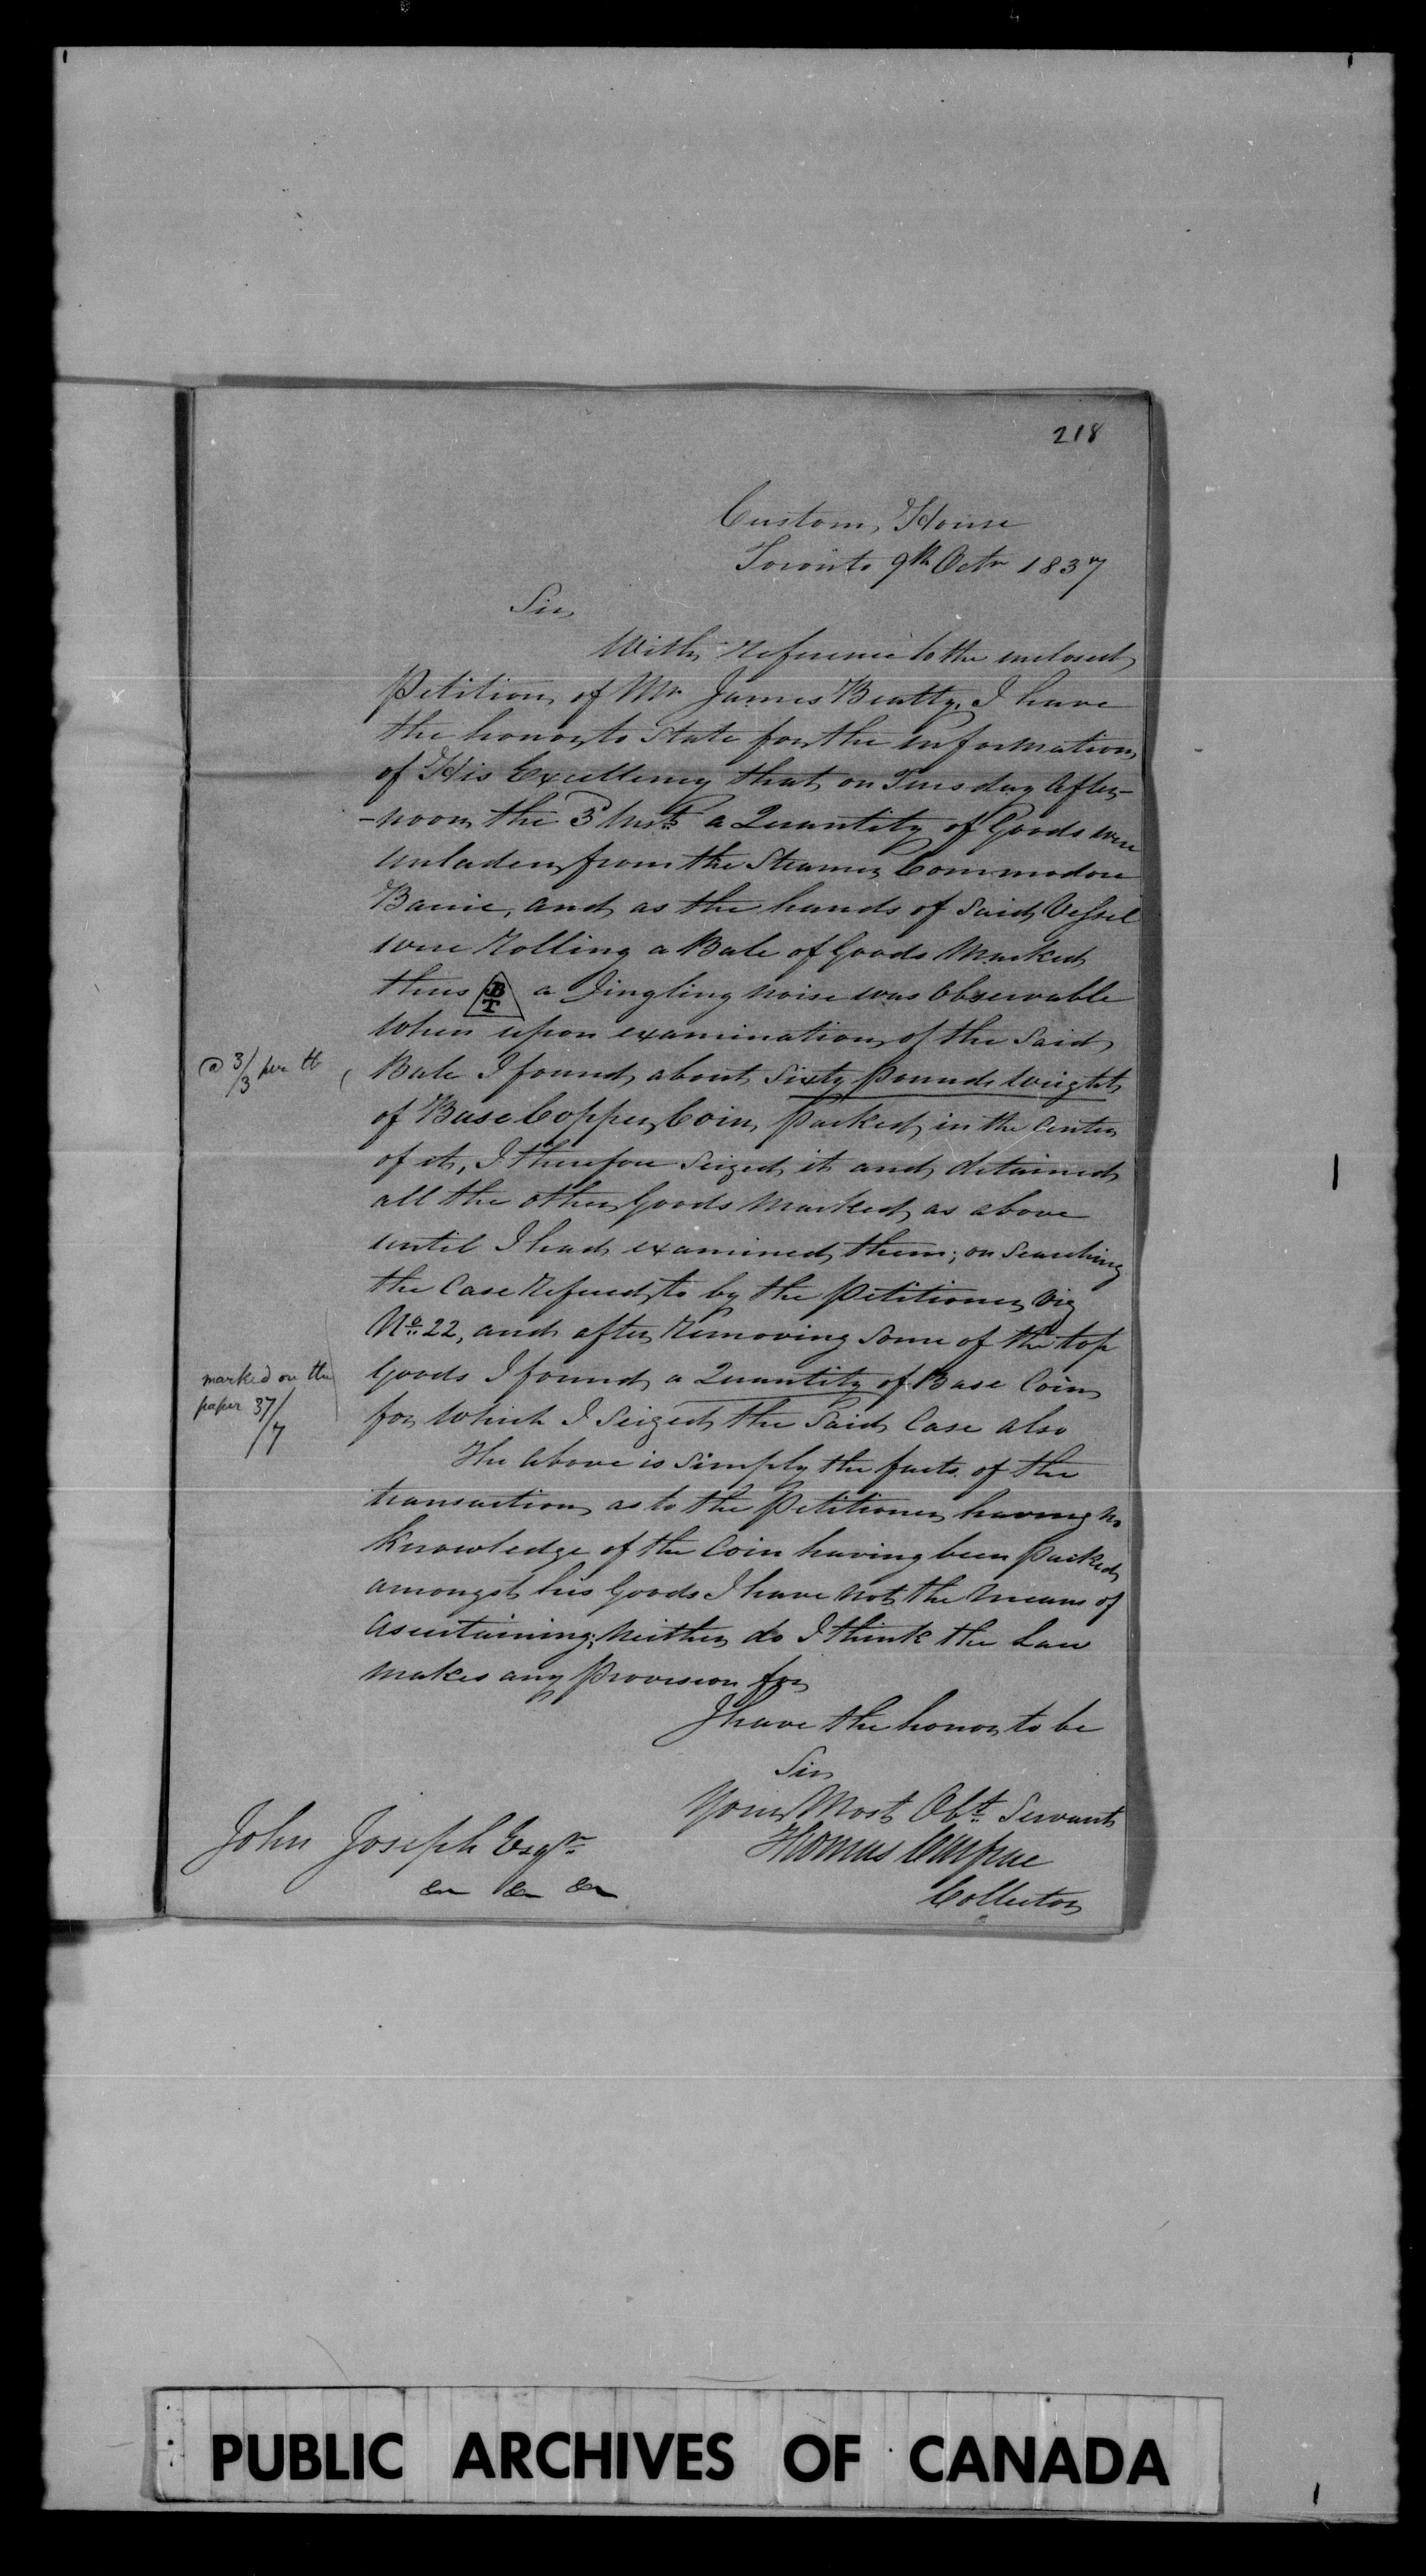 218
Custom House
Toronto 9th Octr 1837
Sir
With reference to the enclosed
Petition of Mr James Beatty, I have
the honor to state for the information
of His Excellency that on Tuesday After-
-noon the 3d Inst. a Quantity of Goods were
unladen from the Steamer Commodore
Barrie, and as the hands of said Vessel
were Rolling a Bale of Goods Marked
thus B/T a Jingling noise was Observable
When upon examination of the said
Bale I found about Sixty pounds Weight
@ 3/3 per lb
of Base Copper Coin packed in the Center
of it, I therefore Seized it and detained
all the other Goods Marked as above
until I had examined them; on Searching
the Case refered to by the Petitioner Viz
No. 22, and after removing some of the top
Goods I found a Quantity of Base Coin
marked on the
paper 37/
/7
for Which I Seized the said Case also
The above is simply the facts of the
transaction, as to the Petitioner having no
Knowledge of the Coin having been packed
amongst his Goods I have not the means of
Ascertaining; Neither do I think the Law
makes any provision for
I have the honor to be
Sir
Your Most Obt. Servant
Thomas Carfrae
Collector
John Joseph Esqr.
&c &c &c
PUBLIC ARCHIVES OF CANADA